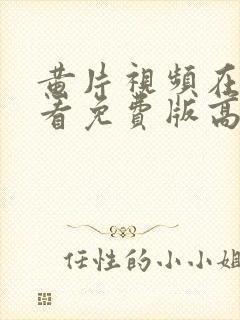 黄片視頻在
看免費版高
任性的小小姐